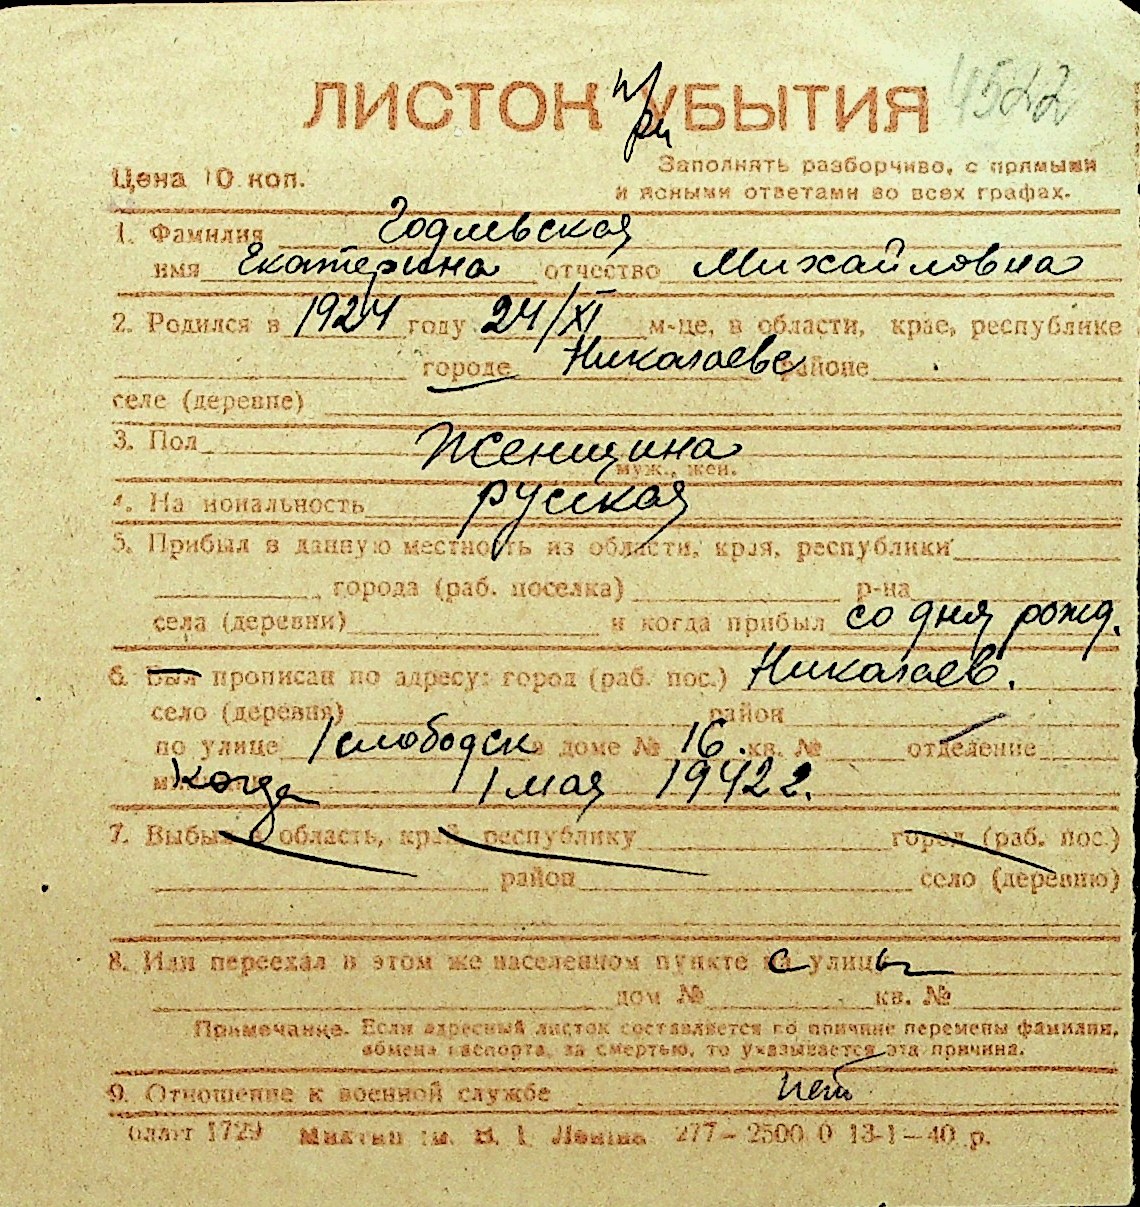 4522
ЛИСТОК при УБЫТИЯ
Цена 10 коп.
Заполнять разборчиво, с прямыми
и ясными ответами во всех графах.
1. Фамилия Годлевская
имя Екатерина отчество Михайловна
2. Родился в 1924 году 24/XI м-це, в области, крае, республике
городе Николаеве районе
селе (деревне)
3. Пол Женщина
муж., жен.
4. Национальность русская
5. Прибыл в данную местность из области, края, республики
города (раб. поселка) р-на
села (деревни) и когда прибыл со дня рожд.
6. Был прописан по адресу: город (раб. пос.) Николаев.
село (деревня) район
по улице 1 слободск в доме № 16 кв. № отделение
когда 1 мая 1942 г.
7. Выбыл в область, край, республику город (раб. пос.)
район село (деревню)
8. Или переехал в этом же населенном пункте с улицы
дом № кв. №
Примечание. Если адресный листок составляется по причине перемены фамилии,
обмена паспорта, за смертью, то указывается эта причина.
9. Отношение к военной службе нет
1729 им. В. И. Ленина 277—2500 0 13-1—40 р.